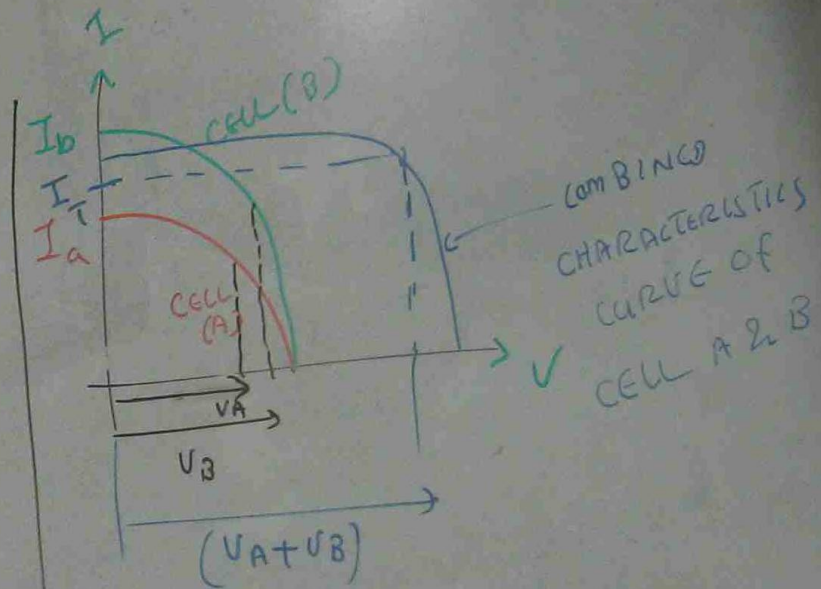 I
Ib
CELL (B)
IT
Ia
CELL
(A)
COMBINCD
CHARACTERISTICS
CURVE OF
CELL A & B
V
VA
VB
(VA+VB)